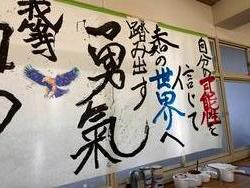 自分の可能性を
信じて
春の世界へ
踏み出す
勇氣
我等